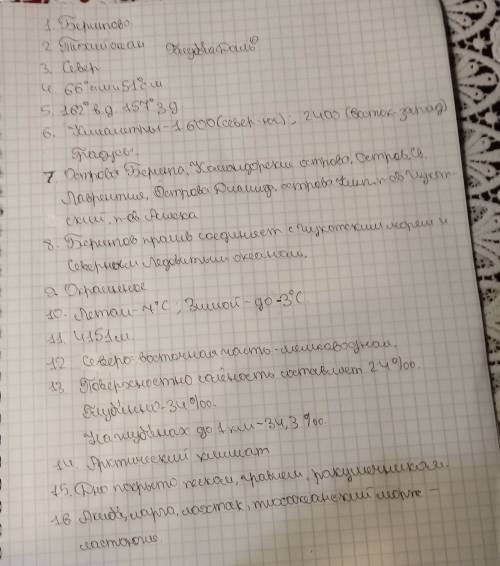 1. Берингово
2. Тихий океан
3. Север
4. 66° с.ш и 51° с.ш
5. 162° в.д 157° з.д
6. Километры - 1600 (север-юг), 2400 (восток-запад)
Градусы.
7. Острова Беринга, Командорские острова, Остров Св.
Лаврентия, Острова Диамид, острова п-ов Чукот-
ский, п-ов Аляска
8. Берингов пролив соединяет с Чукотским морем и
Северным Ледовитым океаном.
9. Окраинное
10. Летом - 7°C; Зимой - до -3°C
11. 4151 м
12 Северо-восточная часть - мелководная.
13 Поверхностно солёность составляет 24‰.
Глубинно - 34‰.
На глубинах до 1 км - 34,3‰.
14. Арктический климат
15. Дно покрыто песком, гравием, ракушечником.
16 ларга, лахтак, тихоокеанский морж -
ластоногие